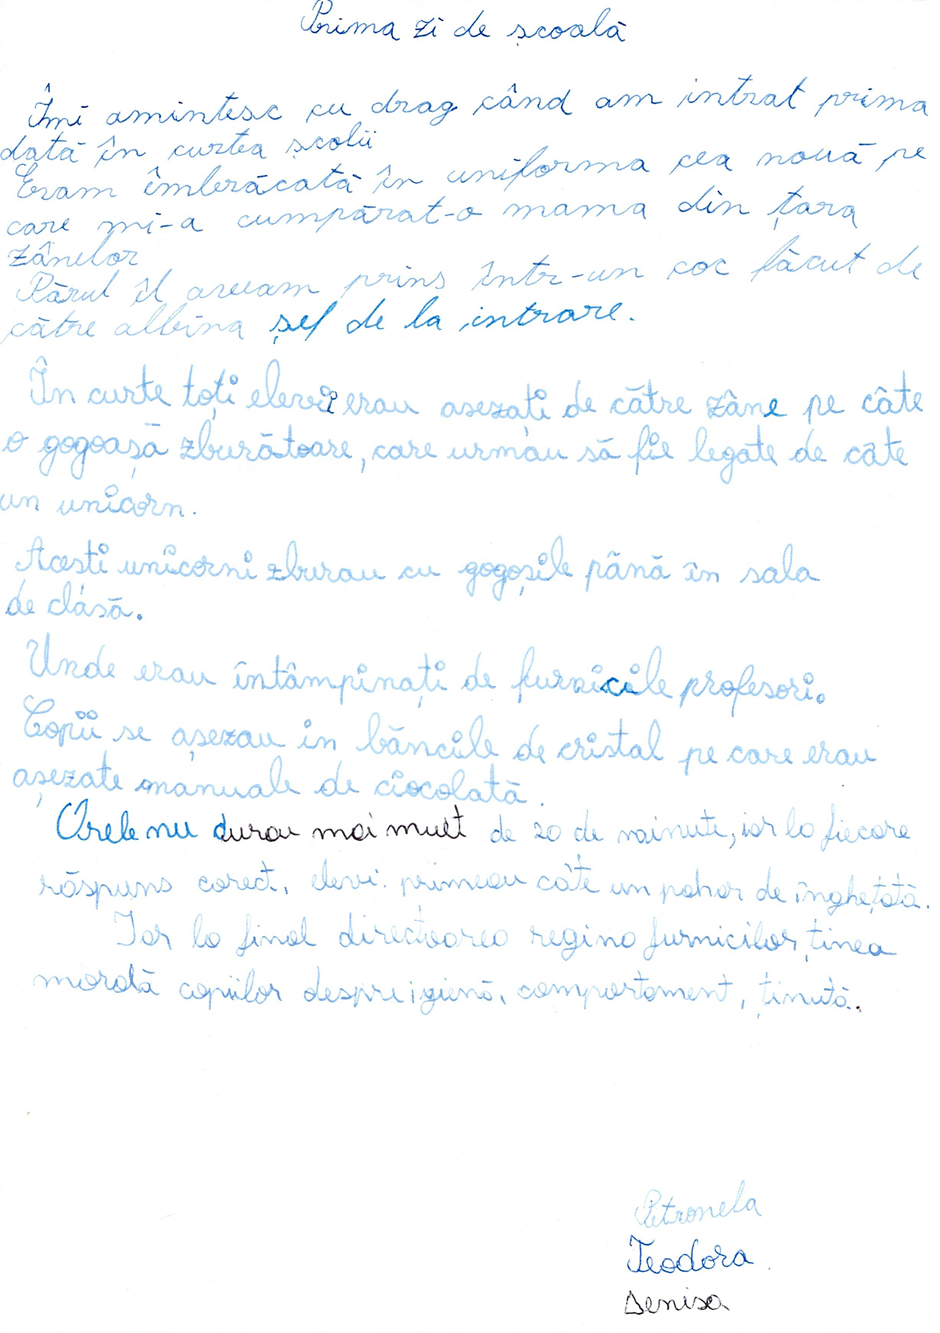 Prima zi de școală
Îmi amintesc cu drag când am intrat prima
dată în curtea școlii
Eram îmbrăcată în uniforma cea nouă pe
care mi-a cumpărat-o mama din țara
zânelor
Părul îl aveam prins într-un coc făcut de
către albina șef de la intrare.
În curte toți elevii erau asezați de către zâne pe câte
o gogoașă zburătoare, care urmau să fie legate de câte
un unicorn.
Acesti unicorni zburau cu gogoșile până în sala
de clasă.
Unde erau întâmpinați de furnicile profesori.
Copii se așezau în băncile de cristal pe care erau
așezate manuale de ciocolată.
Orele nu durau mai mult de 20 de minute, iar la fiecare
răspuns corect, elevi primeau câte un pahar de înghețată.
Iar la final directoarea regina furnicilor, ținea
morală copiilor despre igienă, comportament, ținută.
Petronela
Teodora
Denisa